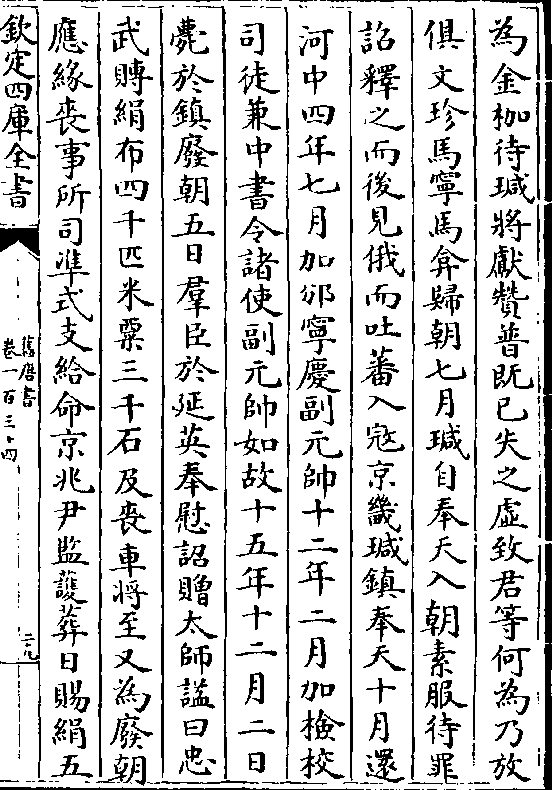 為金枷待瑊將獻贊普既已失之虛致君等何為乃放
俱文珍馬寧馬弇歸朝七月瑊自奉天入朝素服待罪
詔釋之而後見俄而吐蕃入寇京畿瑊鎮奉天十月還
河中四年七月加邠寧慶副元帥十二年二月加檢校
司徒兼中書令諸使副元帥如故十五年十二月二日
薨於鎮廢朝五日羣臣於延英奉慰詔贈太師謚曰忠
武賻絹布四千匹米粟三千石及喪車將至又為廢朝
應緣喪事所司準式支給命京兆尹監護葬日賜絹五
欽定四庫全書
舊唐書
卷一百三十四
二九